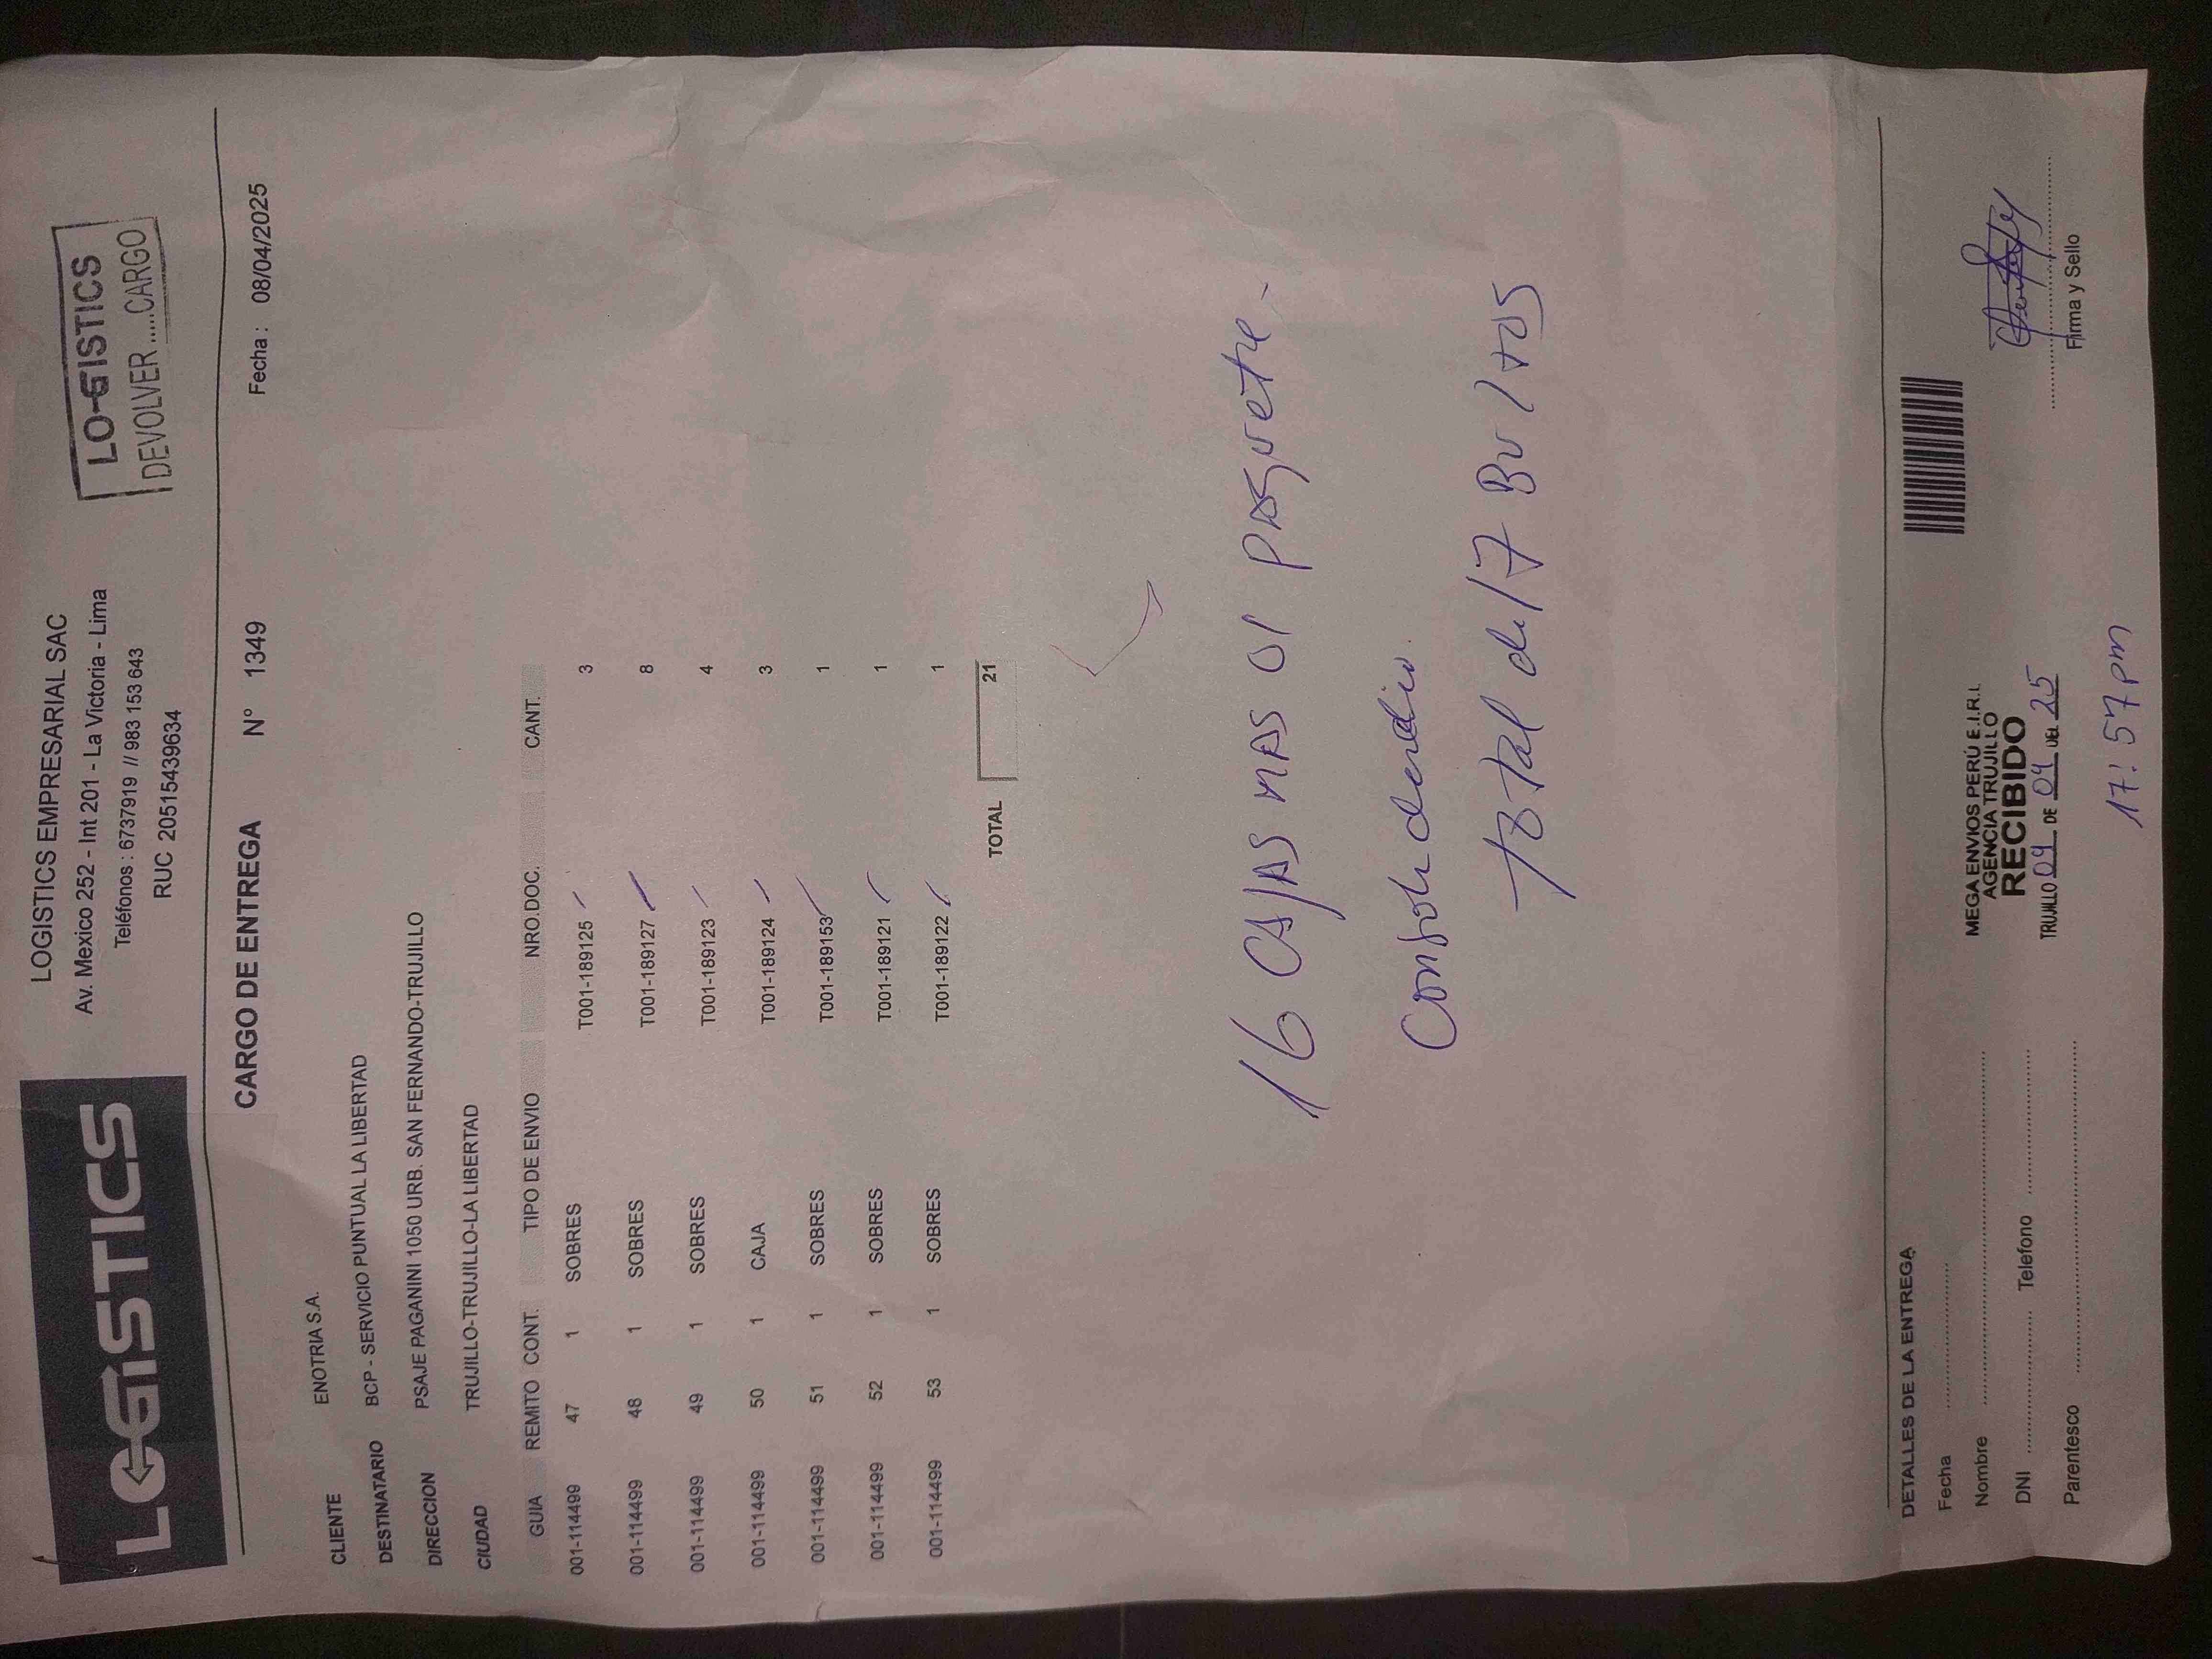 LOGISTICS
LOGISTICS EMPRESARIAL SAC
Av. Mexico 252 - Int 201 - La Victoria - Lima
Teléfonos : 6737919 // 983 153 643
RUC 20515439634
LOGISTICS
DEVOLVER.....CARGO
CARGO DE ENTREGA N° 1349
Fecha : 08/04/2025
CLIENTE ENOTRIA S.A.
DESTINATARIO BCP - SERVICIO PUNTUAL LA LIBERTAD
DIRECCION PSAJE PAGANINI 1050 URB. SAN FERNANDO-TRUJILLO
CIUDAD TRUJILLO-TRUJILLO-LA LIBERTAD
GUIA REMITO CONT. TIPO DE ENVIO NRO.DOC. CANT.
001-114499 47 1 SOBRES T001-189125 3
001-114499 48 1 SOBRES T001-189127 8
001-114499 49 1 SOBRES T001-189123 4
001-114499 50 1 CAJA T001-189124 3
001-114499 51 1 SOBRES T001-189153 1
001-114499 52 1 SOBRES T001-189121 1
001-114499 53 1 SOBRES T001-189122 1
TOTAL 21
16 CAJAS MAS 01 paquete
total de 17 Bultos
DETALLES DE LA ENTREGA
Fecha
Nombre
DNI Telefono
Parentesco
MEGA ENVIOS PERÚ E.I.R.L.
AGENCIA TRUJILLO
RECIBIDO
TRUJILLO 09 DE 04 DEL 25
17:57pm
Firma y Sello